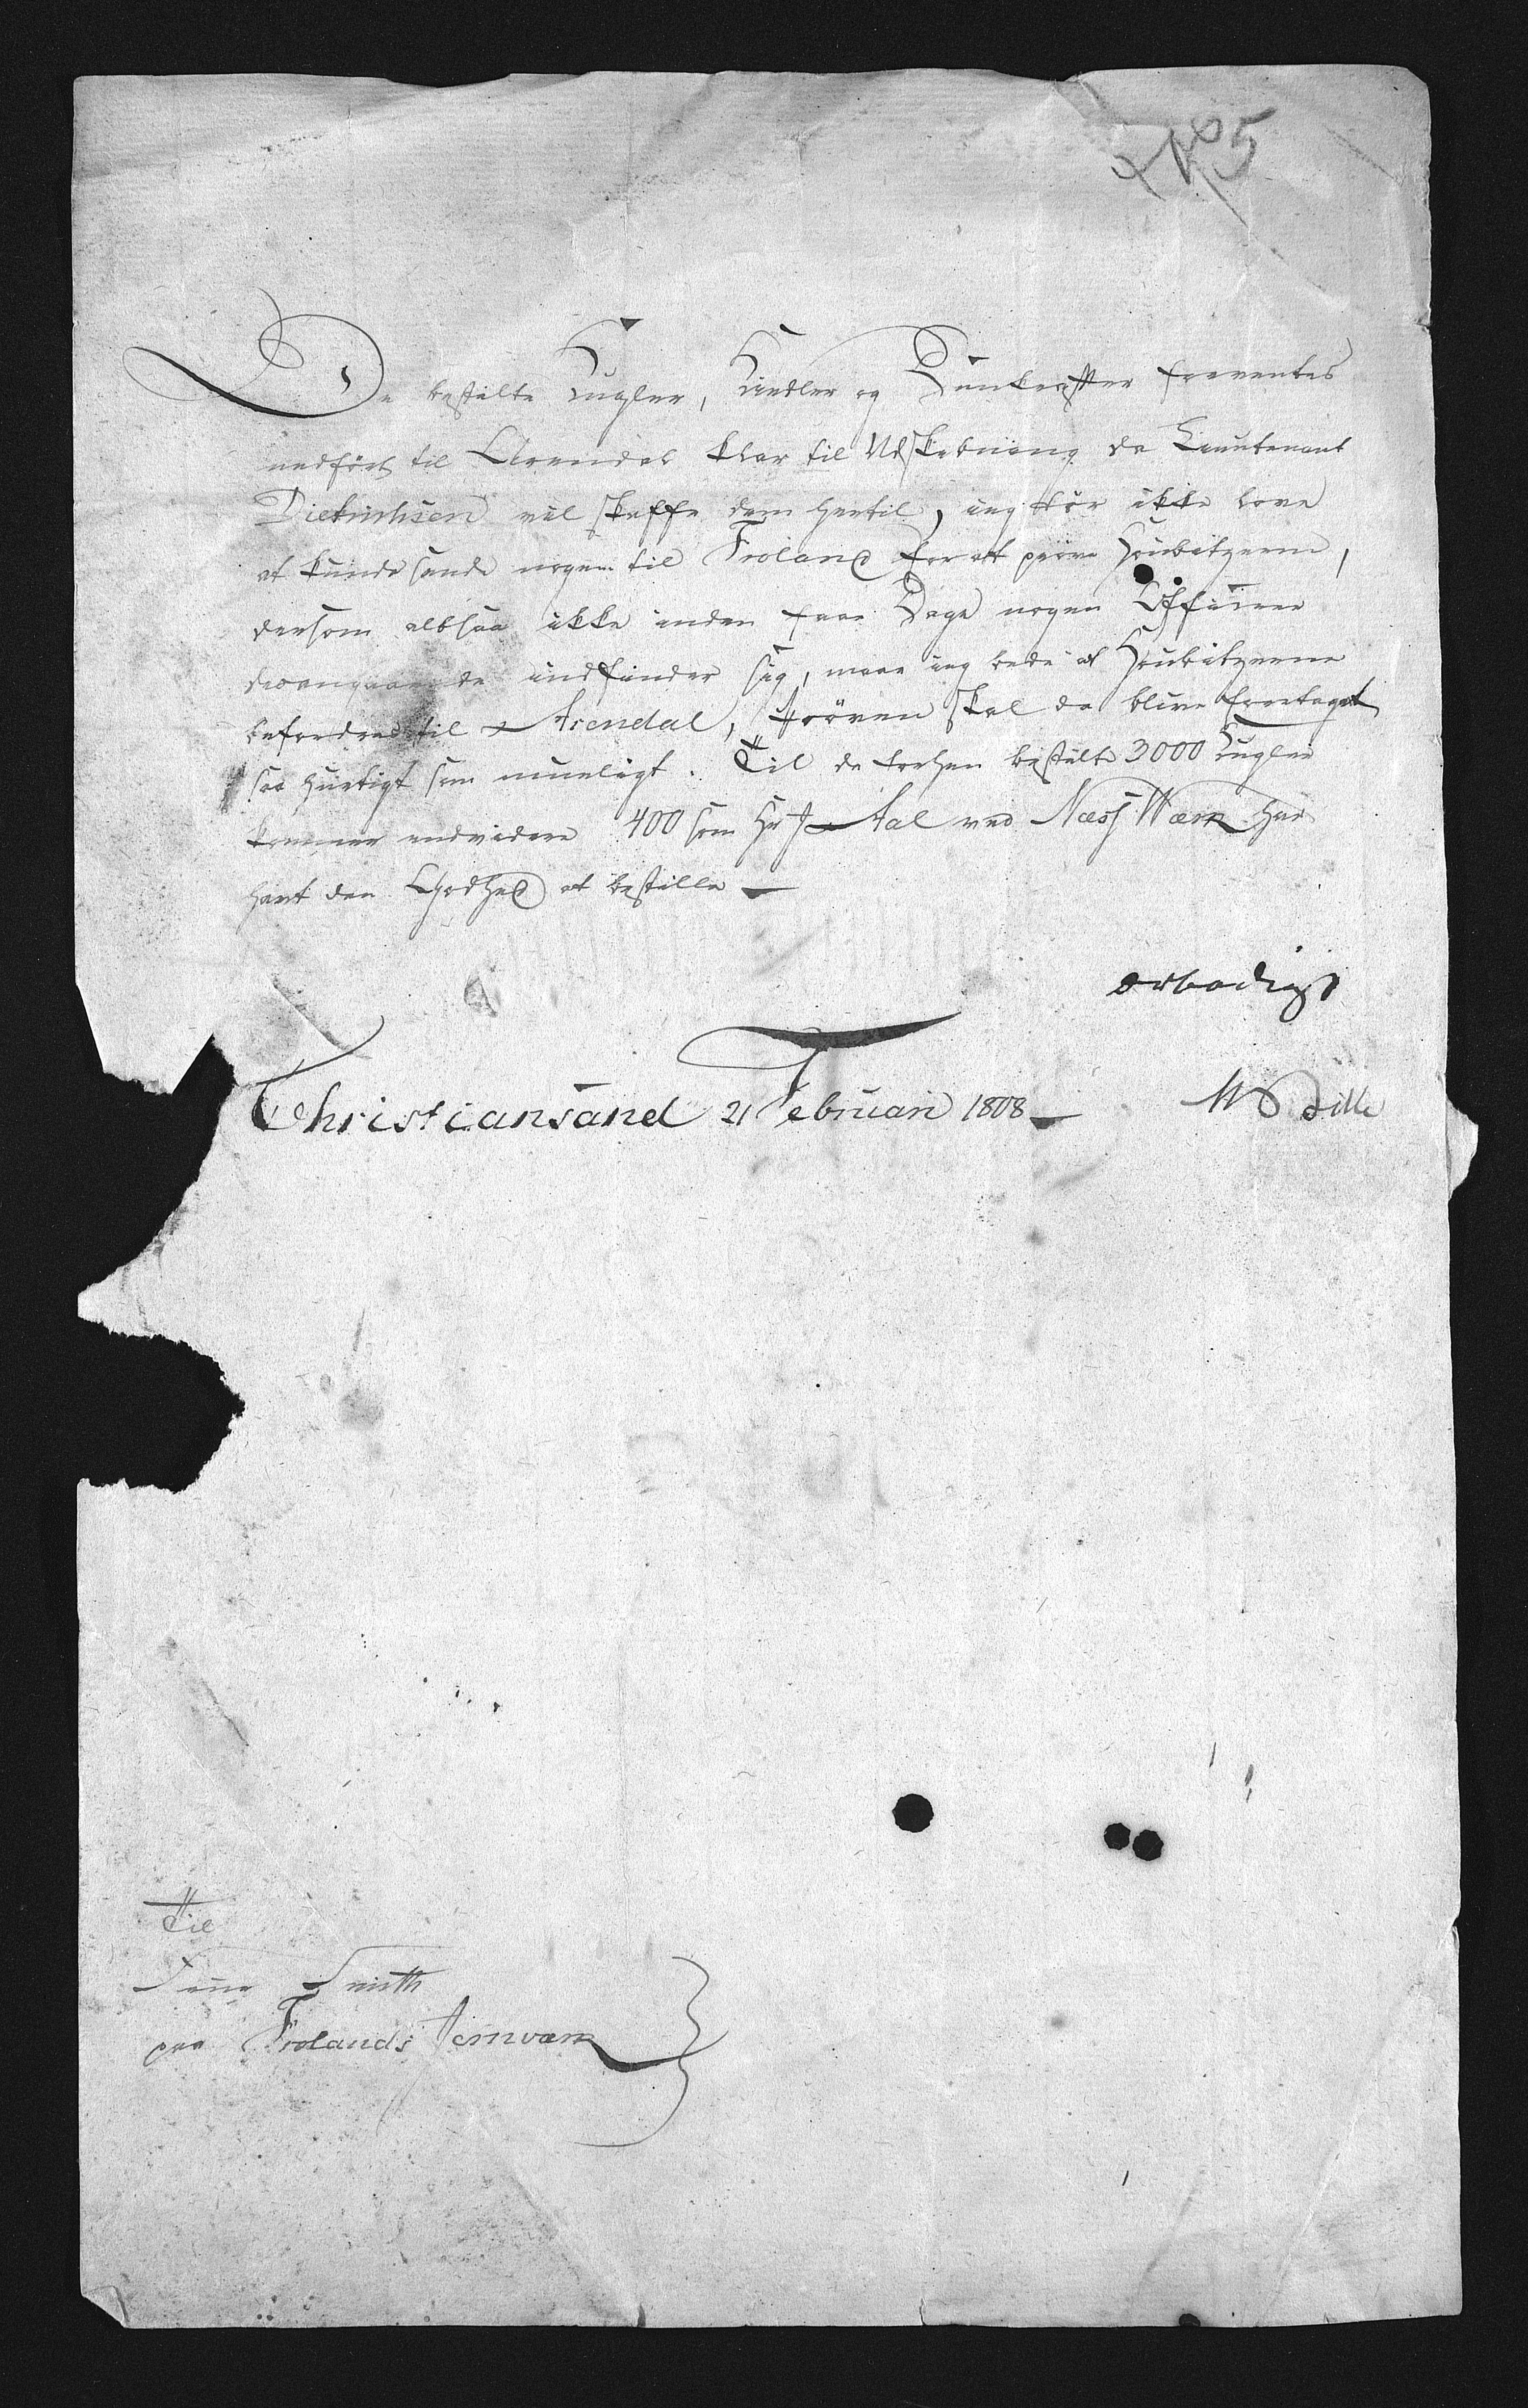 № 5
De bestilte Kugler, Kindler og Dunkrafter forventes
nedført til Arendal klar til Udskibning da Lieutenant
Dietrichsen vil skaffe dem hertil, ieg tør ikke love
at kunde sende nogen til Froland for at prøve Houbitzerne,
dersom altsaa ikke inden faae Dage nogen Officeer
desangaaende indfinder sig, maae ieg bede at Houbitzerne
befordres til Arendal, Prøven skal da blive foretaget
saa hurtigt som mueligt. Til de forhen bestilte 3000 Kugler
kommer endvidere 400 som Hr J Aal ved Næss Wærk har
havt den Godhed at bestille
ærbødigst
Christiansand 21 Februari 1808 Bille
Til
Smith
paa Frolands Jernværk